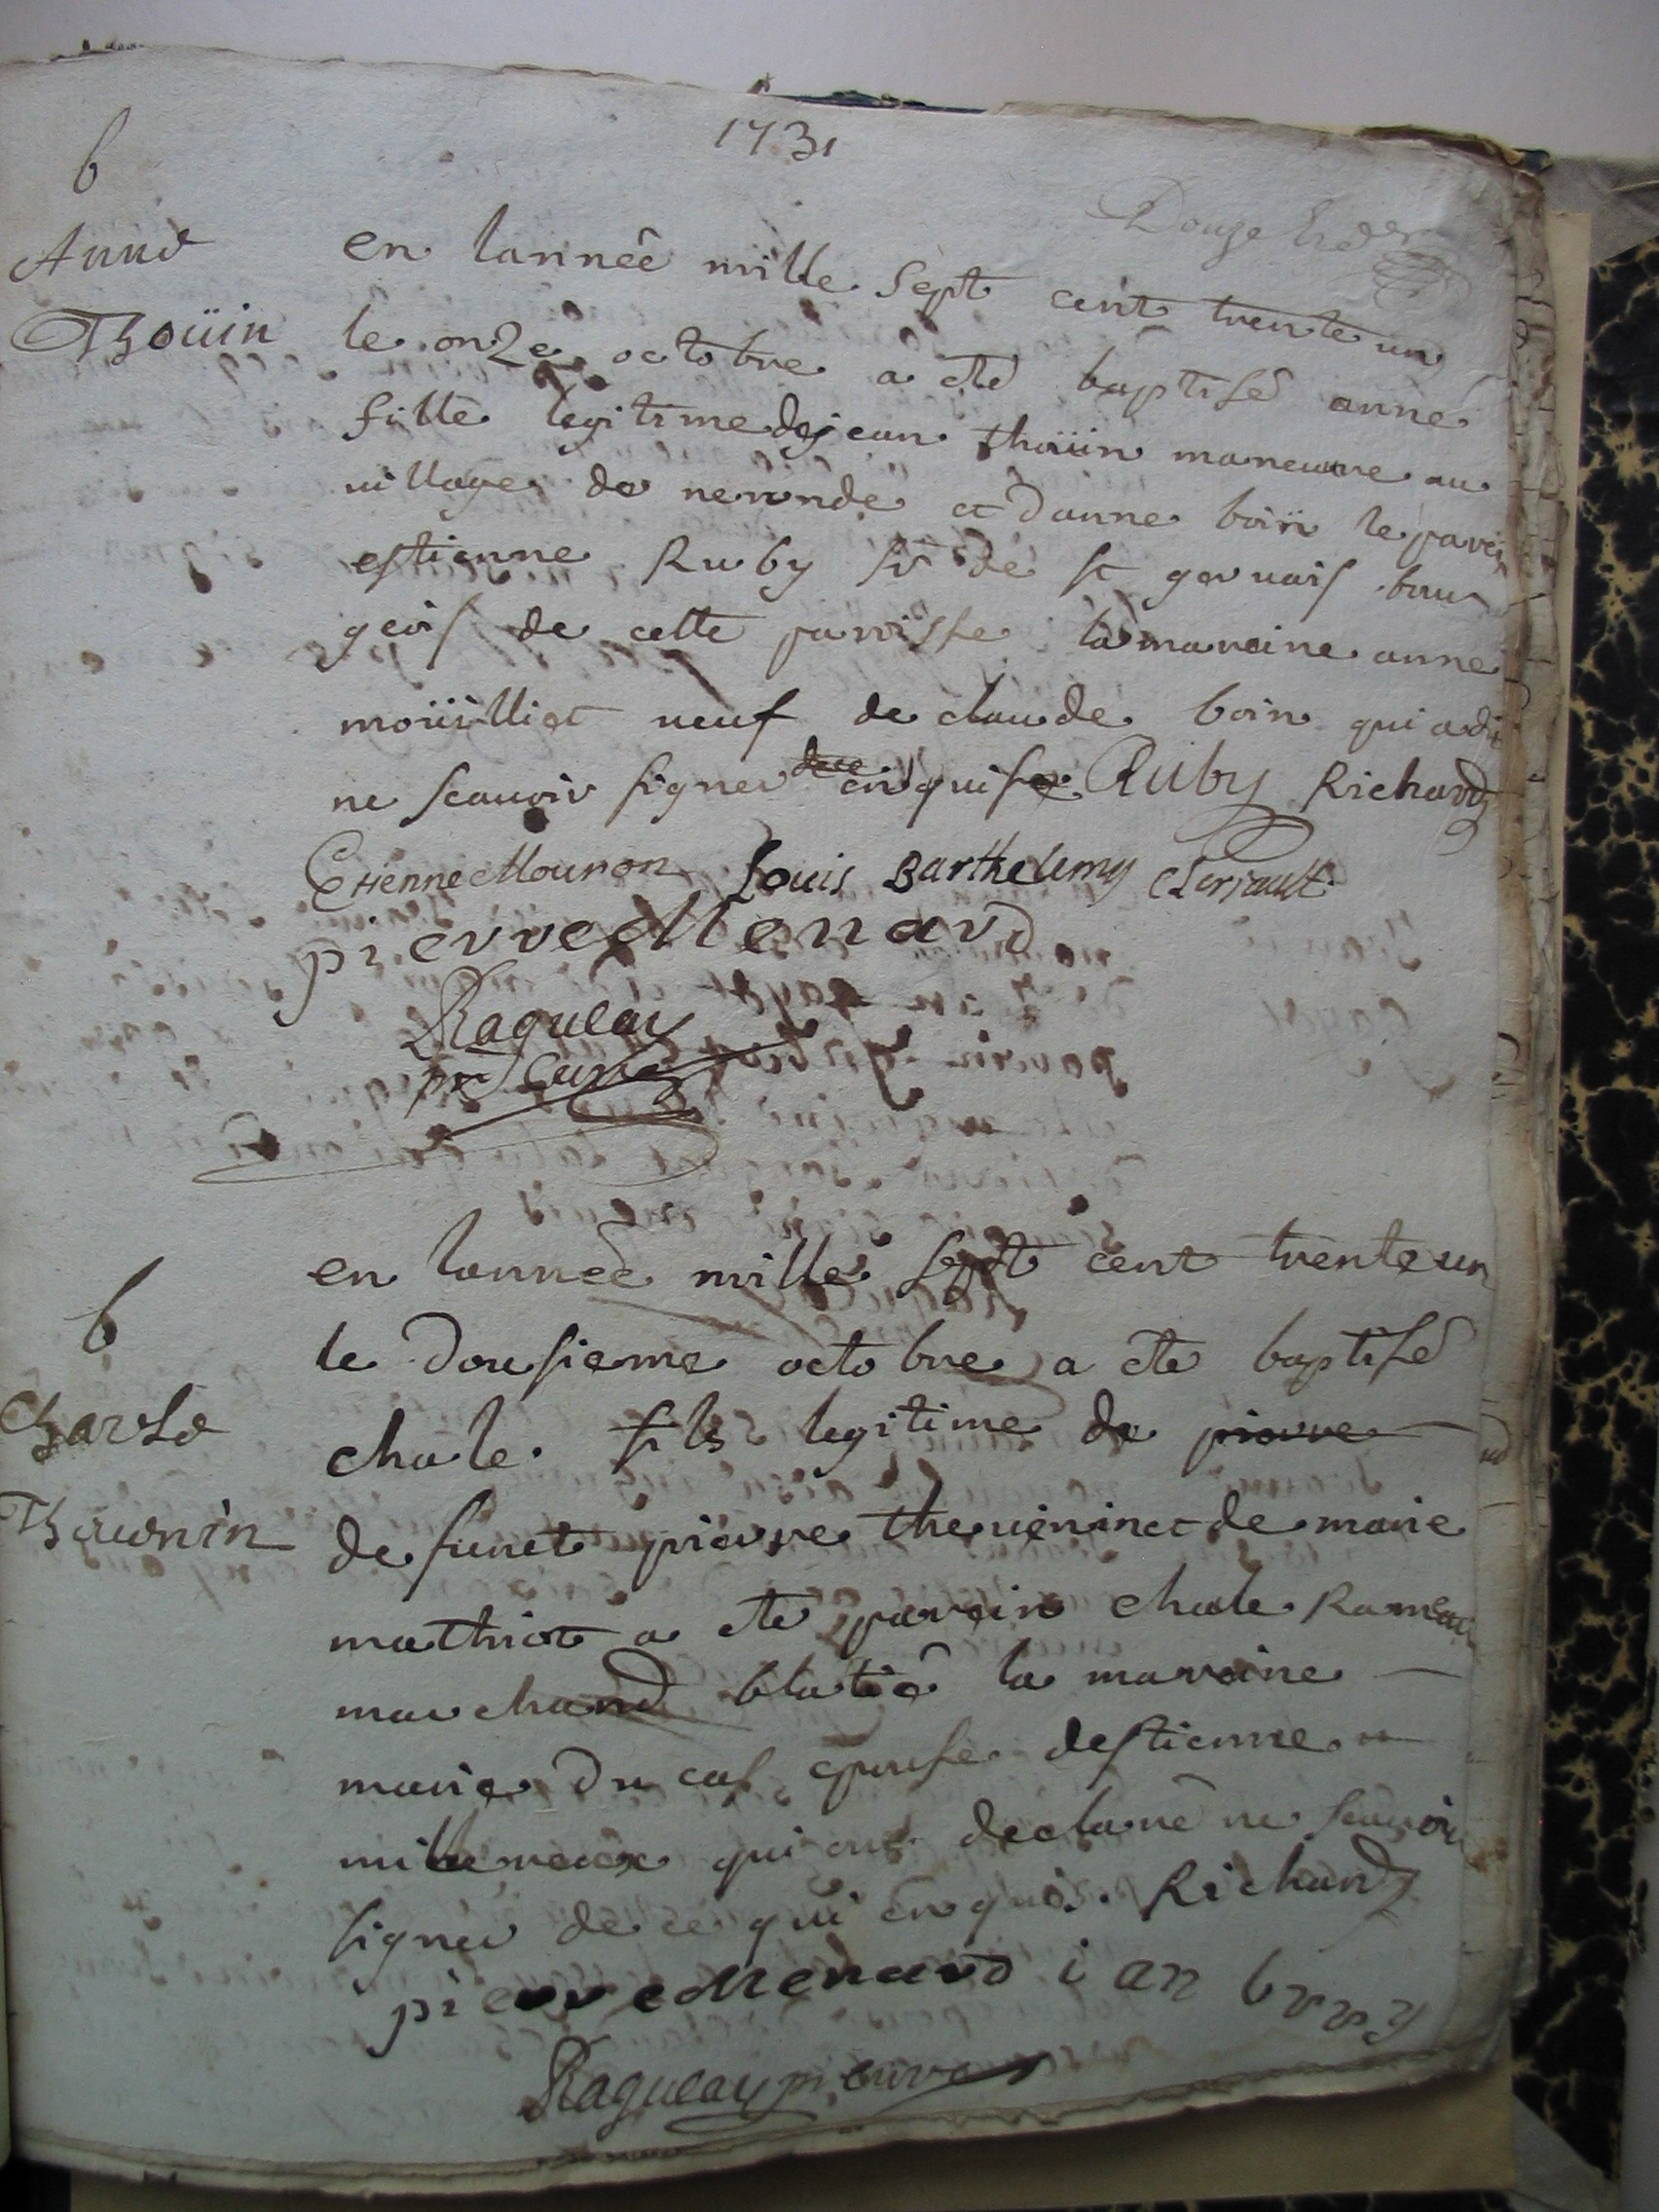 1731
b
Anne
Thoüin
Douze
en lanneê mille sept cent trente un
le onze octobre a eté baptisé anne
fille legitime de jean thoüin maneuvre au
village de neronde et danne boin le parein
estienne Ruby sr de st gervais bour
geois de cette parroisse la mareine anne
moüilliet veuf de claude boin qui a dit
ne scauoir signer enquise Ruby Richard
Etienne Mouron Louis Barthelemy
pierre Menard
Ragueau
ptre Curé
b
Charle
Theuenin
en lanneé mille sept cent trente un
le dousieme octobre a ete baptisé
chale fils legitime de pierre
defunct pierre theuenin et de marie
mathiot a ete parein chale Rameau
marchand blatié la mareine
marie du cas epouse destienne
millereux qui ont declaré ne scauoir
signer de ce qui enquis. Richard
pierre Menard ian
Ragueau p. curé